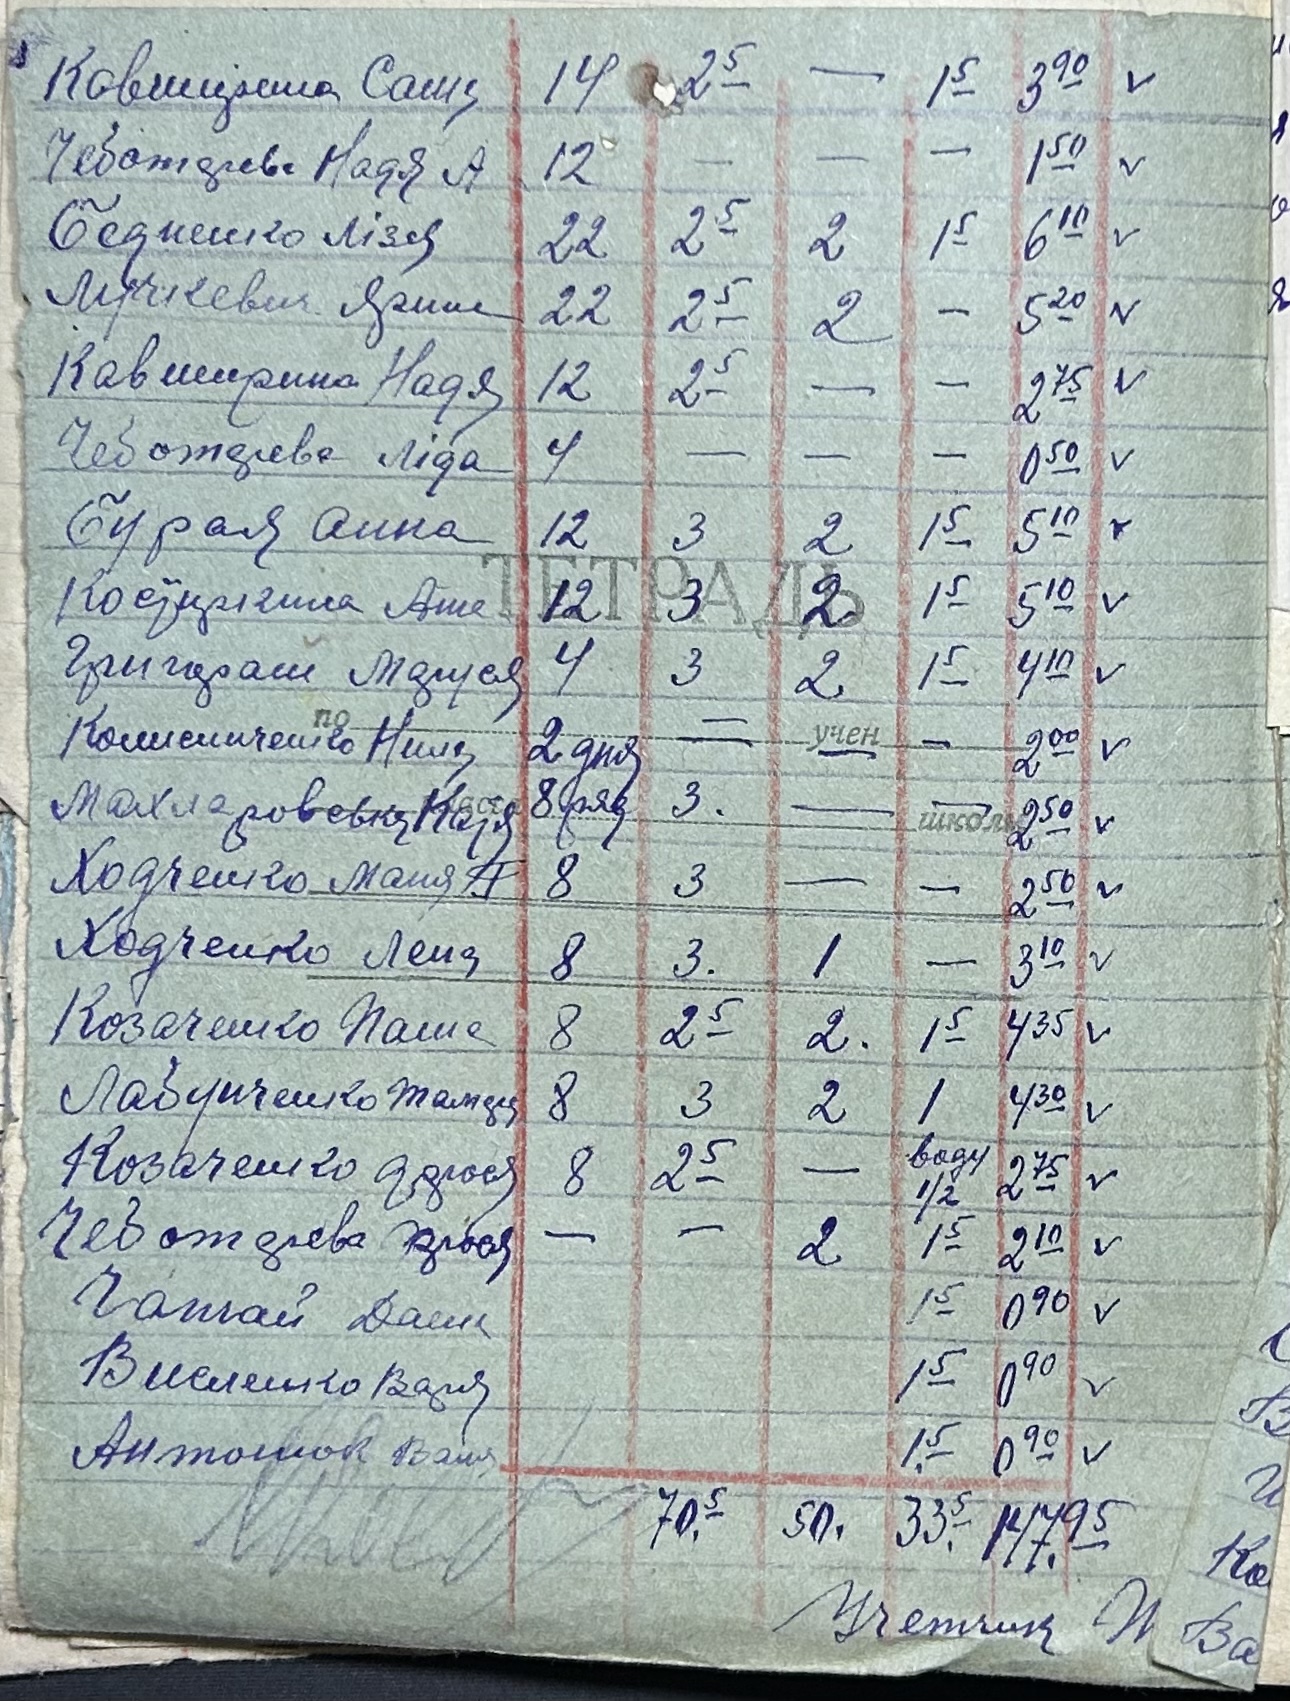 Кавширина Саша 14 2⁵ — 1⁵ 3⁹⁰ v
Чеботарева Надя А 12 — — — 1⁵⁰ v
Бедненко Лізя 22 2⁵ 2 1⁵ 6¹⁰ v
Лучкевич Ярина 22 2⁵ 2 — 5²⁰ v
Кавширина Надя 12 2⁵ — — 2⁷⁵ v
Чеботарева Ліда 4 — — — 0⁵⁰ v
Бурая Анна 12 3 2 1⁵ 5¹⁰ v
ТЕТРАДЬ
12 3 2. 1⁵ 5¹⁰ v
Григораш Маруся 4 3 2. 1⁵ 4¹⁰ v
по учен
Колісниченко Нина 2 дня — — — 2⁰⁰ v
Надя 8 ряд 3. — — 2⁵⁰ v
школы
Ходченко Маня 8 3 — — 2⁵⁰ v
Ходченко Лена 8 3. 1 — 3¹⁰ v
Козаченко Паша 8 2⁵ 2. 1⁵ 4³⁵ v
Лабунченко Тамара 8 3 2 1 4³⁰ v
Козаченко Фрося 8 2⁵ — воду 1/2 2⁷⁵ v
Чеботарева Фрося — — 2 1⁵ 2¹⁰ v
Чаплай Даша 1⁵ 0⁹⁰ v
Висленко Варя 1⁵ 0⁹⁰ v
Антонюк Ваня 1.⁵ 0⁹⁰ v
70.⁵ 50. 33.⁵ 117.⁹⁵
Учетчик